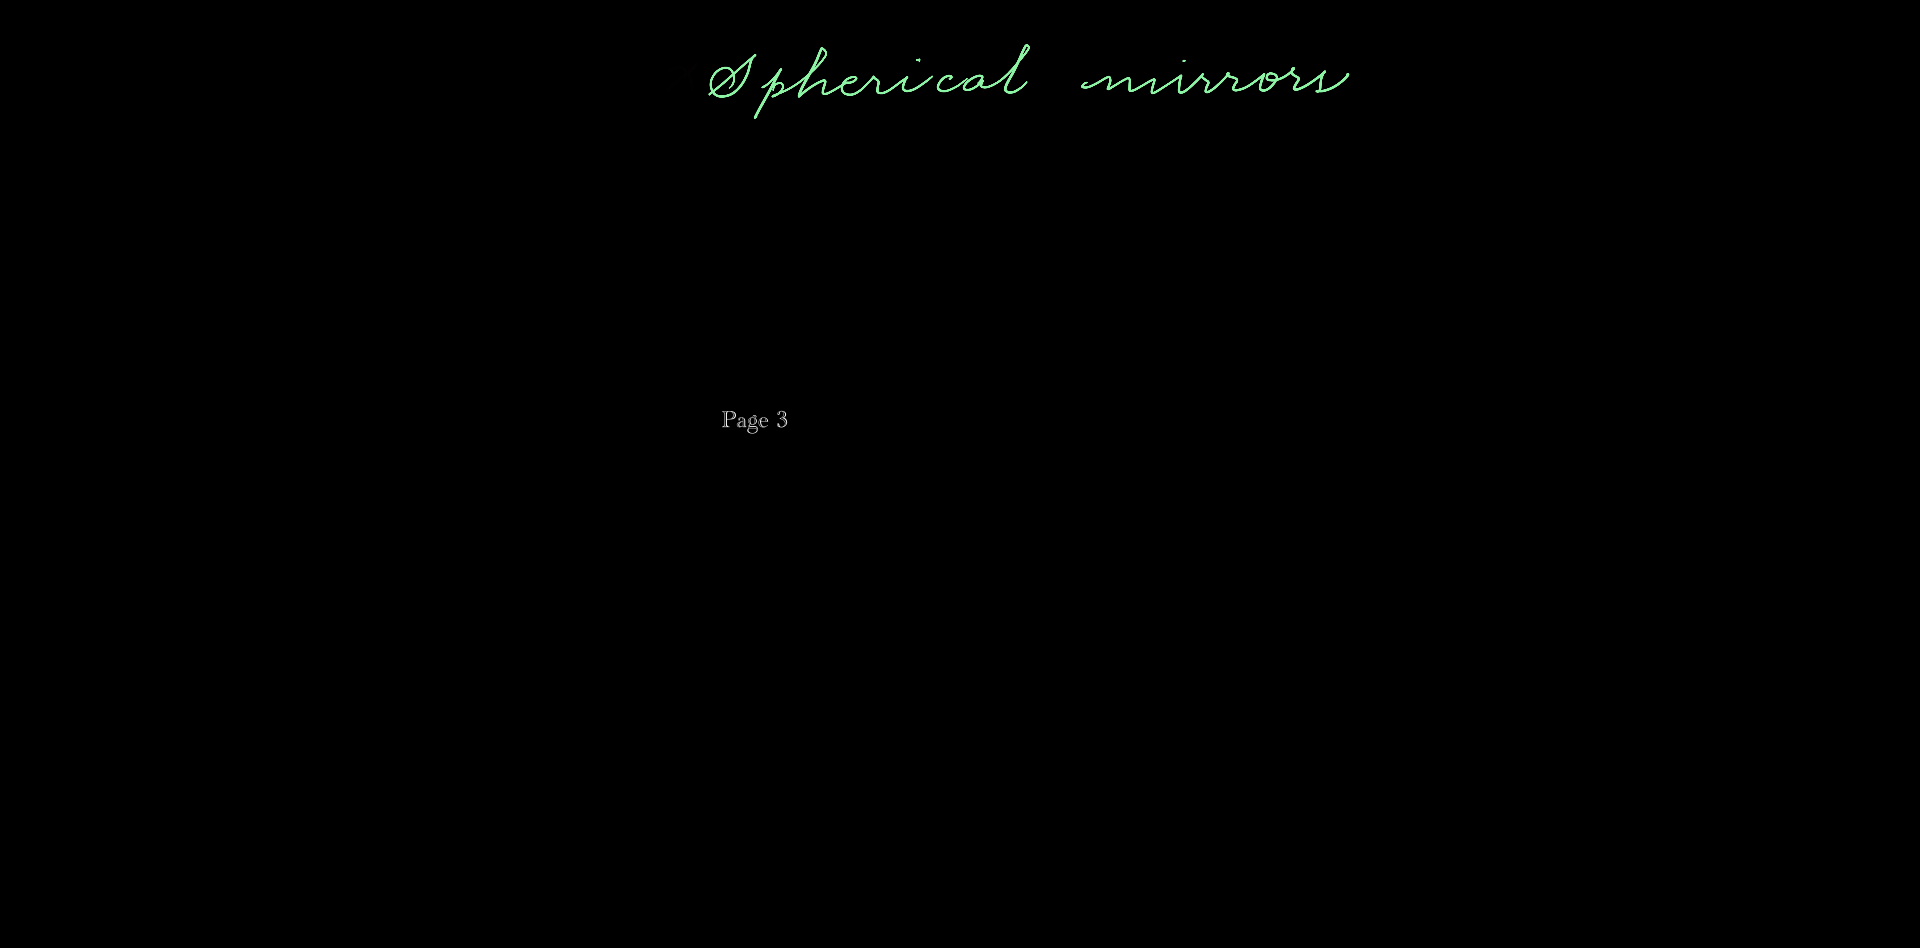 Spherical mirrors
Page 3